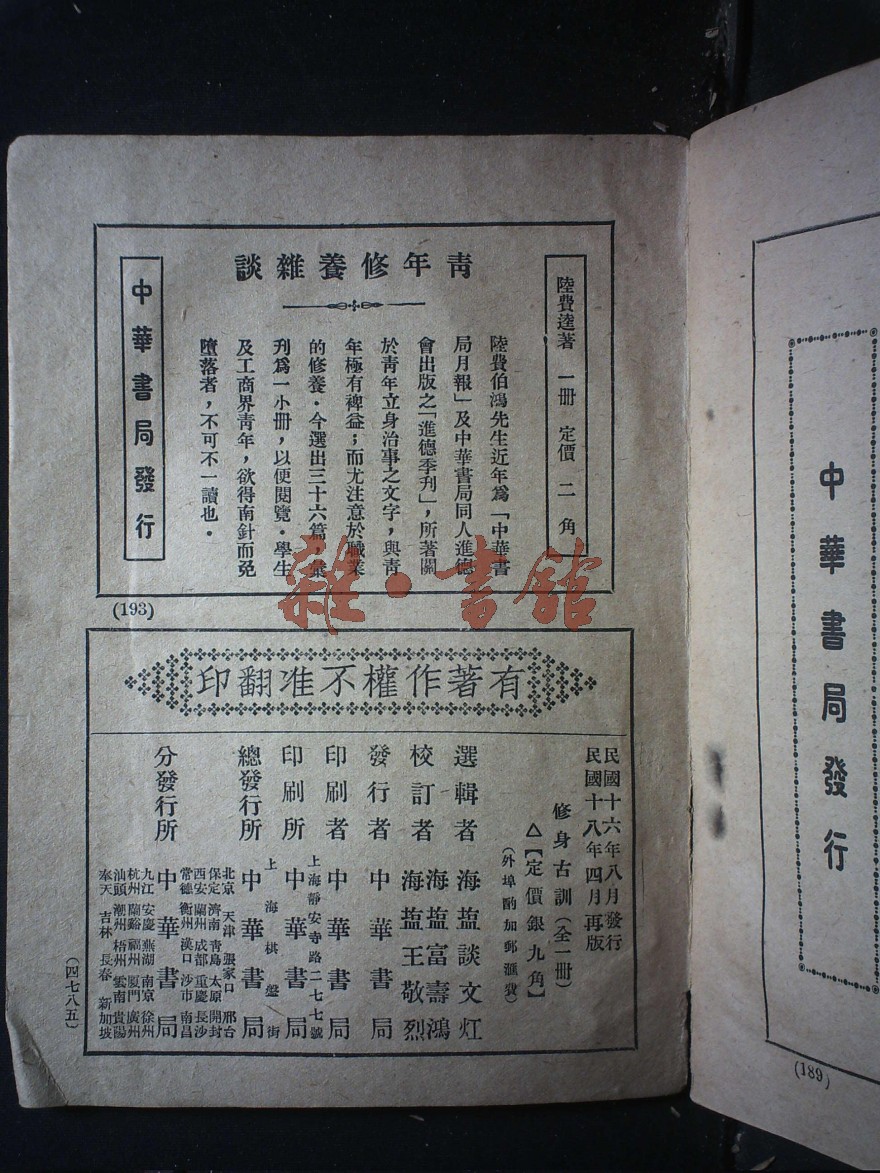 青年修養雜談
陸費逵著 一冊 定價 二角
陸費伯鴻先生近年爲「中華書
局月報」及中華書局同人進德
會出版之「進德季刊」，所著關
於青年立身治事之文字，與青
年極有裨益；而尤注意於職業
的修養．今選出三十六篇，彙
刋爲一小冊，以便閱覽．學生
及工商界青年，欲得南針而免
墮落者，不可不一讀也．
中華書局發行
(193)
雜·書館
有著作權不准翻印
民國十六年八月發行
民國十八年四月再版
修身古訓（全一冊）
△【定價銀九角】
（外埠酌加郵滙費）
選輯者 海塩談文灴
校訂者 海塩富壽鴻
海塩王敬烈
發行者 中華書局
印刷者 中華書局
上海靜安寺路二七七號
印刷所 中華書局
上海棋盤街
總發行所 中華書局
分發行所 中華書局
北京 天津 張家口 邢台
保定 濟南 青島 太原 開封
西安 蘭州 成都 重慶 長沙
常德 衡州 漢口 沙市 南昌
九江 安慶 蕪湖 南京 徐州
杭州 蘭谿 福州 厦門 廣州
汕頭 潮州 梧州 雲南 貴陽
奉天 吉林 長春 新加坡
（四七八五）
中華書局發行
(189)